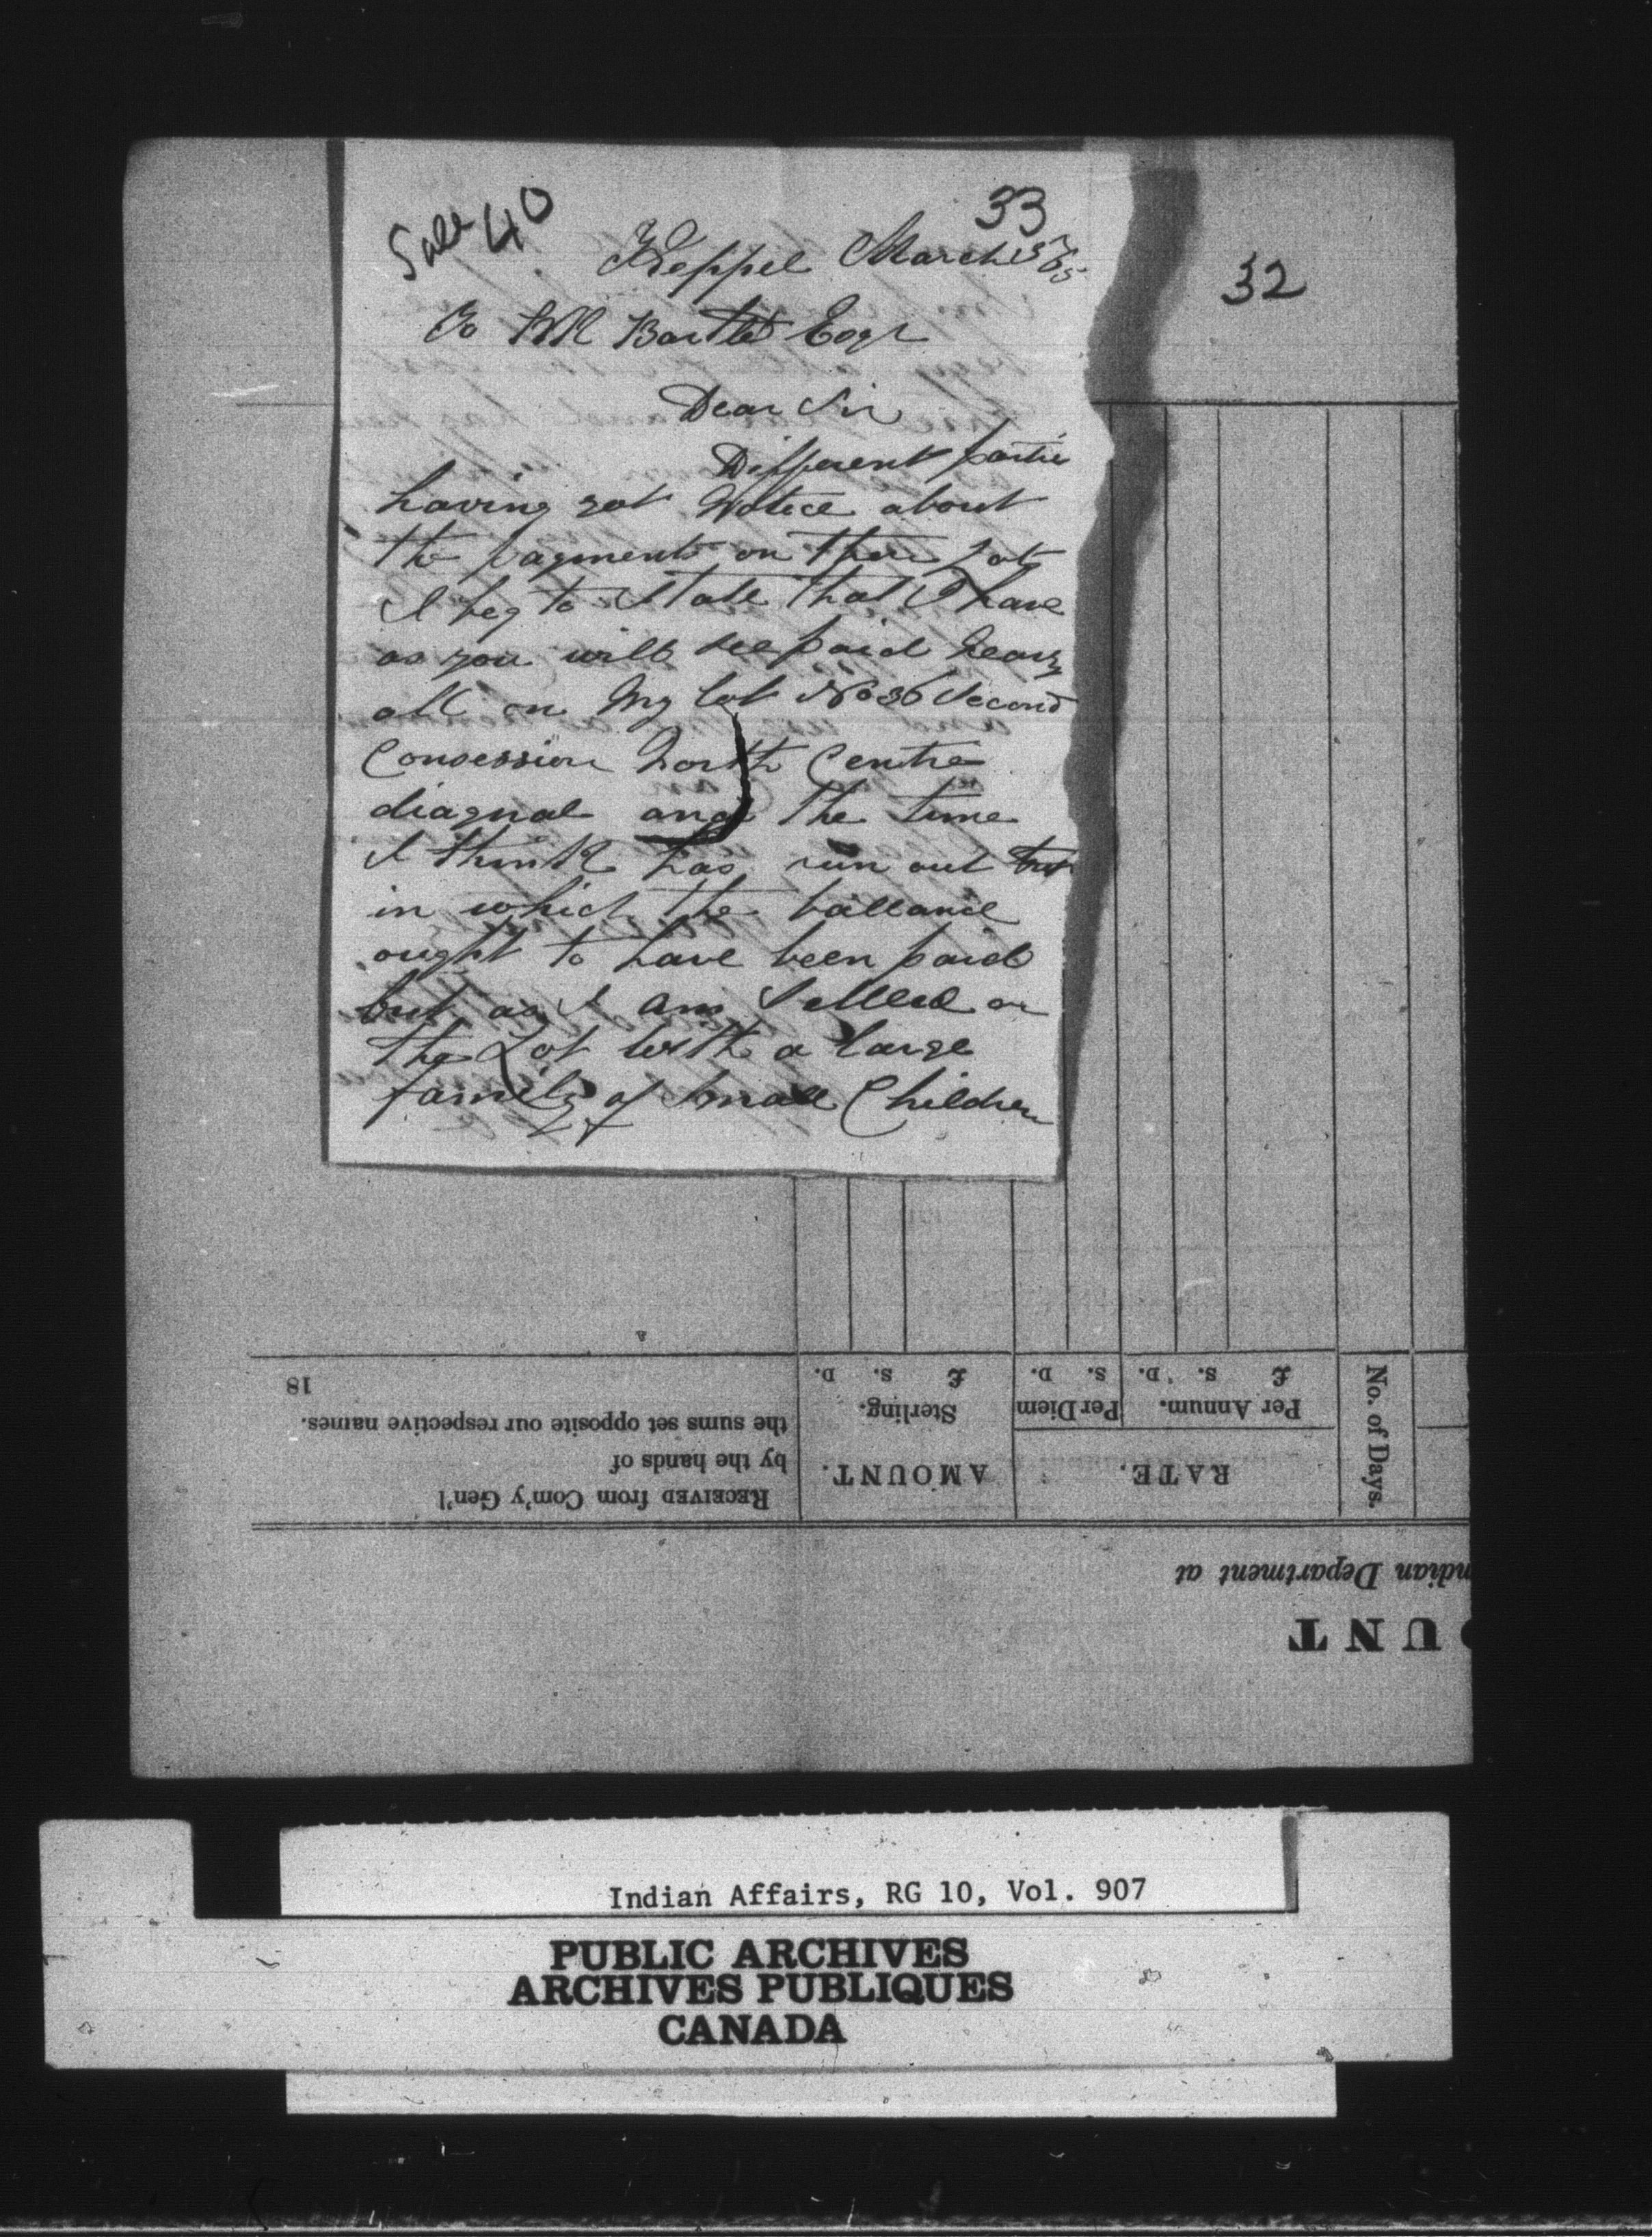 Sale 40
33
32
Keppel March
To Bartlet Esqr
Dear Sir
Different partie
having got Notice about
the payments on their Lots
I beg to State that I have
as you will see paid Nearly
all on My lot No 36 Second
Concession North Centre
diagnal and the time
I think has run out
in which the ballance
ought to have been paid
but as I am Settled on
the Lot with a large
family of Small Children
OUNT
ndian Department at
RECEIVED from Com'y Gen'l
by the hands of
the sums set opposite our respective names.
18
AMOUNT.
Sterling.
£ S. D.
RATE.
Per Diem
S. D.
Per Annum.
£ S. D.
No. of Days.
Indian Affairs, RG 10, Vol. 907
PUBLIC ARCHIVES
ARCHIVES PUBLIQUES
CANADA